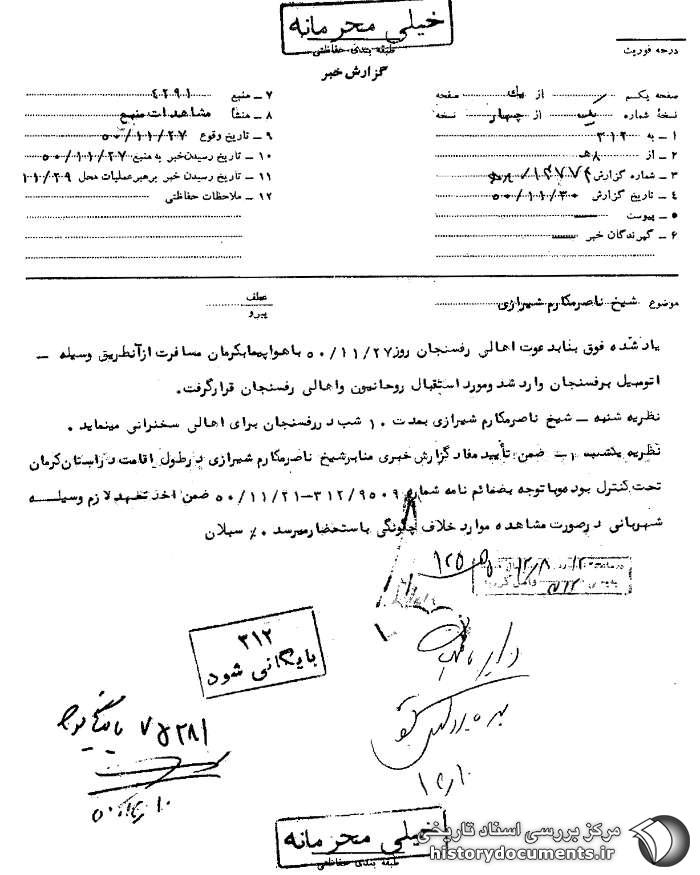 خیلی محرمانه
طبقه بندی حفاظتی
گزارش خبر
درجه فوریت
صفحه یکم از یک صفحه
نسخهٔ شماره یک از چهار نسخه
۱ ــ به ۳۱۲
۲ ــ از ۸هـ
۳ ــ شماره گزارش
۴ ــ تاریخ گزارش ۵۰/۱۱/۳۰
۵ ــ پیوست
۶ ــ گیرندگان خبر
۷ ــ منبع ۴۲۹۱
۸ ــ منشأ مشاهدات منبع
۹ ــ تاریخ وقوع ۵۰/۱۱/۲۷
۱۰ ــ تاریخ رسیدن خبر به منبع ۵۰/۱۱/۲۷
۱۱ ــ تاریخ رسیدن خبر برهبر عملیات محل ۱۱/۲۹
۱۲ ــ ملاحظات حفاظتی
موضوع شیخ ناصر مکارم شیرازی
عطف
پیرو
یاد شده فوق بنابدعوت اهالی رفسنجان روز ۵۰/۱۱/۲۷ باهواپیمابکرمان مسافرت ازآنطریق وسیله ــ
اتومبیل برفسنجان وارد شد ومورد استقبال روحانیون واهالی رفسنجان قرارگرفت.
نظریه شنبه ــ شیخ ناصرمکارم شیرازی بمدت ۱۰ شب در رفسنجان برای اهالی سخنرانی مینماید .
نظریه یکشنبه ۱ــ ضمن تأیید مفاد گزارش خبری منابر شیخ ناصرمکارم شیرازی در طول اقامت در استان کرمان
تحت کنترل بوده وباتوجه بضمائم نامه شماره ۳۱۲/۹۵۰۹ــ۵۰/۱۱/۲۱ ضمن اخذ تعهد لازم وسیلــه
شهربانی در صورت مشاهده موارد خلاف چگونگی باستحضار میرسد ٪۰ سبلان
۳۱۲
بایگانی شود
خیلی محرمانه
طبقه بندی حفاظتی
مرکز بررسی اسناد تاریخی
historydocuments.ir